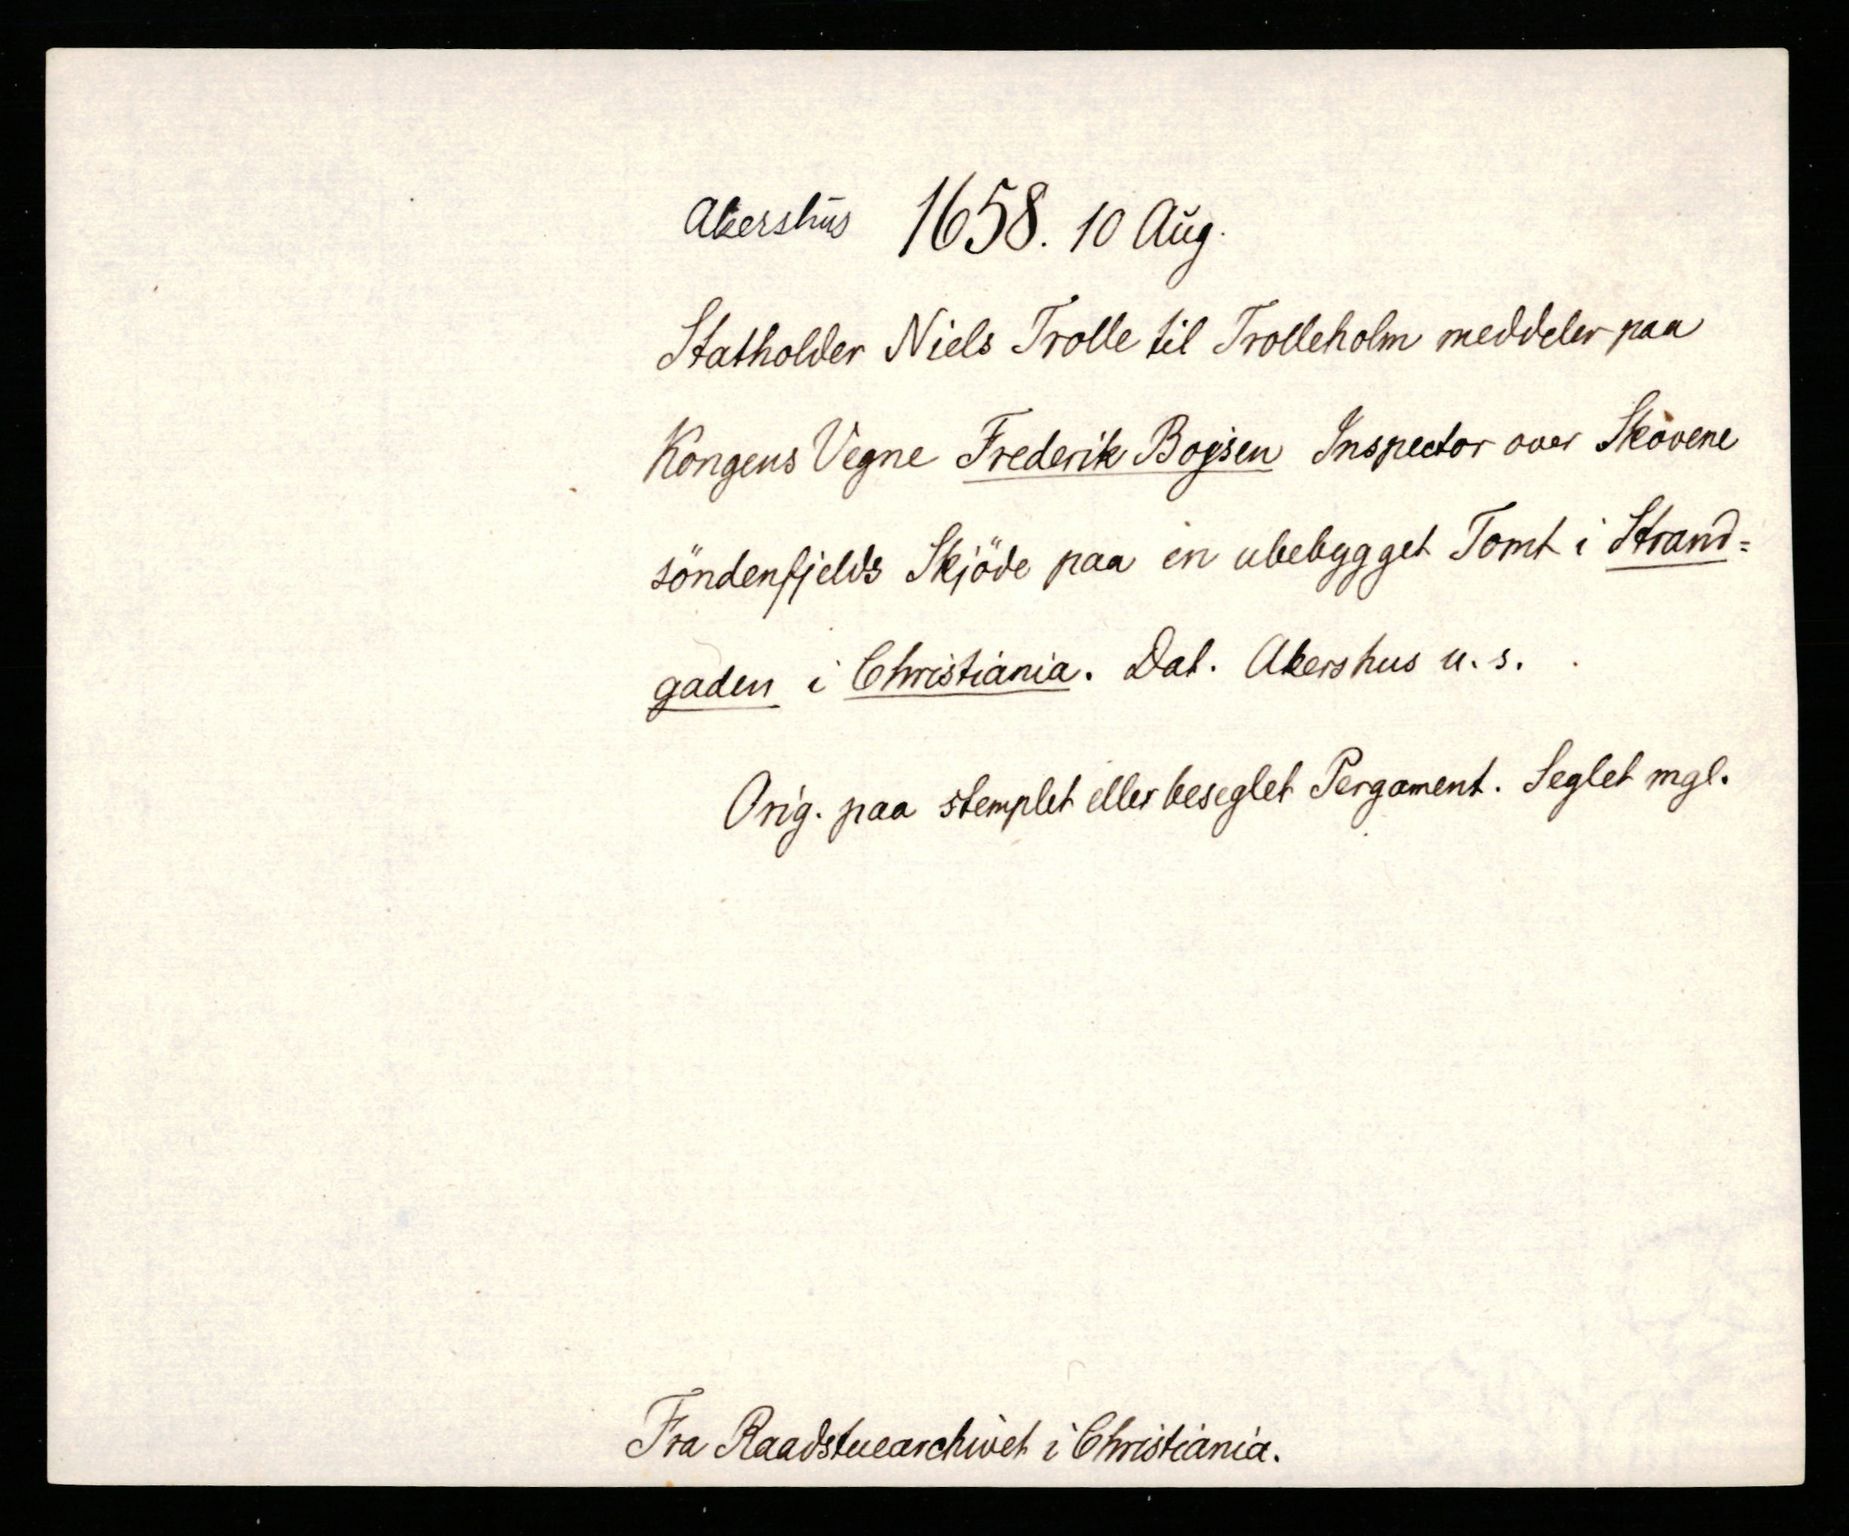 Akershus 1658. 10 Aug.
Statholder Niels Trolle til Trolleholm meddeler paa
Kongens Vegne Frederik Bojsen Inspector over Skovene
söndenfjelds Skjöde paa en ubebygget Tomt i Strand=
gaden i Christiania. Dat. Akershus u. s.
Orig. paa stemplet eller beseglet Pergament. Seglet mgl.
Fra Raadstuearchivet i Christiania.